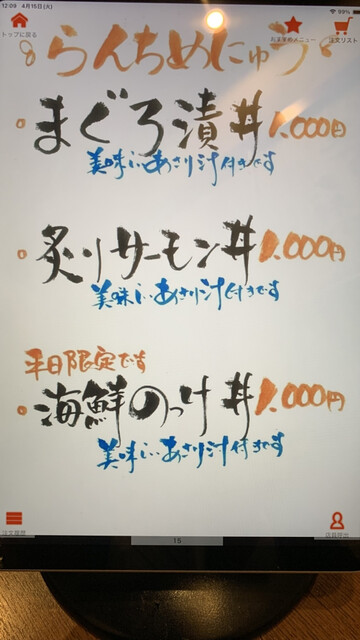 12:09 4月15日(火)
99%
トップに戻る
おすすめメニュー
注文リスト
らんちめにゅう
まぐろ漬丼 1.000円
美味しいあさり汁付きです
炙りサーモン丼 1.000円
美味しいあさり汁付きです
平日限定です
海鮮のっけ丼 1.000円
美味しいあさり汁付きです
注文履歴
15
店員呼出